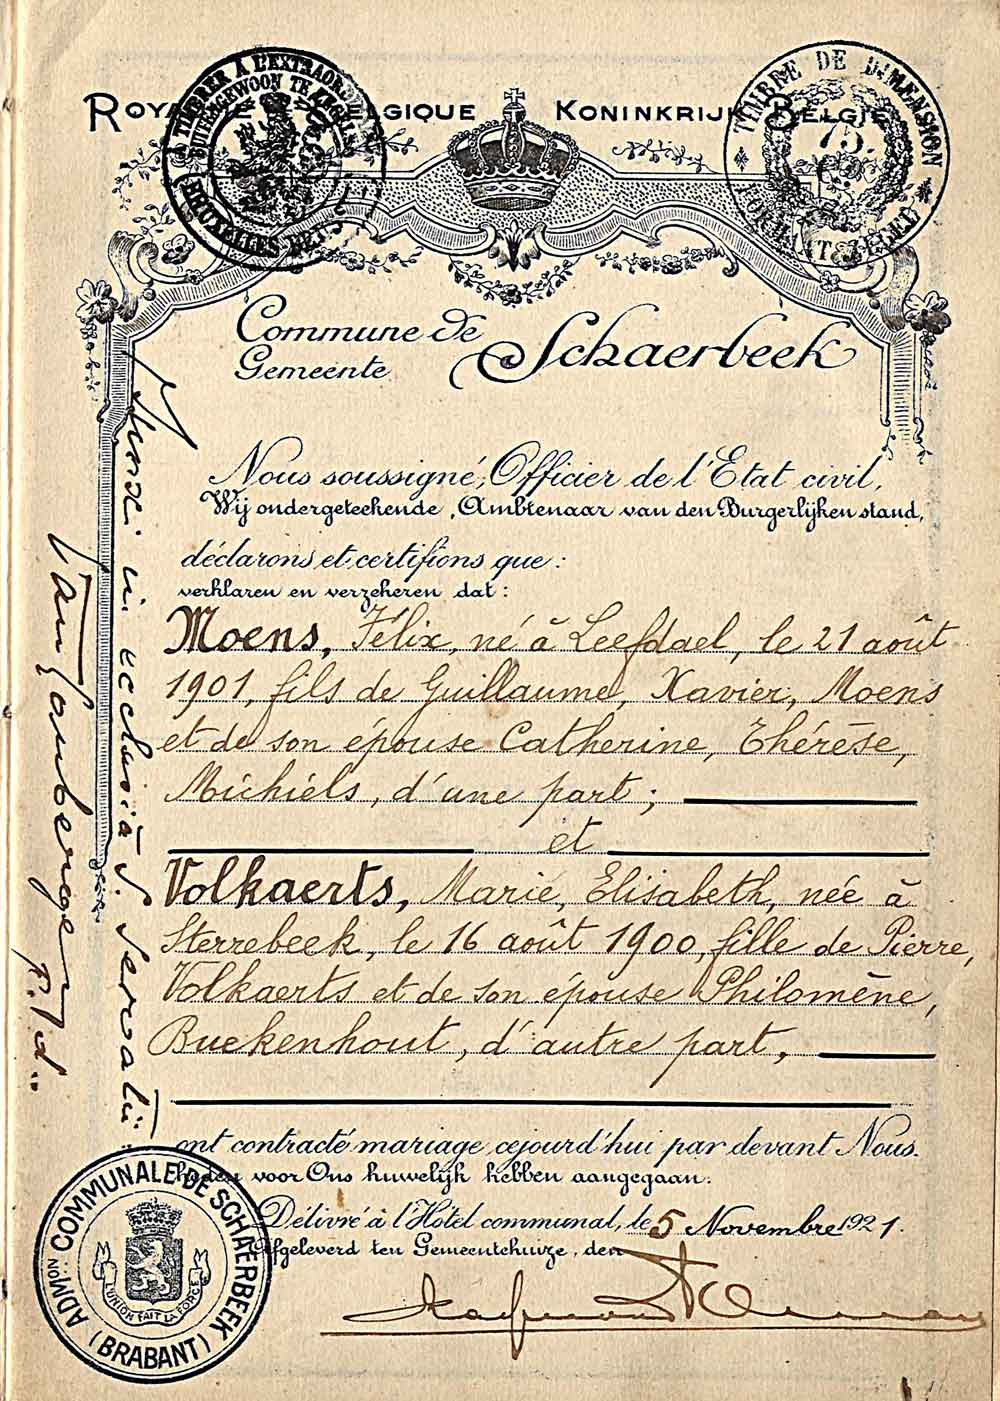 ROYAUME DE BELGIQUE KONINKRIJK BELGIE
A TIMBRER A L'EXTRAORD.
BUITENGEWOON TE ZEGELEN
BRUXELLES
TIMBRE DE DIMENSION
75
FORMAAT ZEGEL
Commune de Schaerbeek
Gemeente
Nous soussigné, Officier de l'Etat civil,
Wij ondergeteekende, Ambtenaar van den Burgerlijken stand,
déclarons et certifions que :
verklaren en verzekeren dat :
Moens, Félix, né à Leefdael, le 21 août
1901, fils de Guillaume, Xavier, Moens
et de son épouse Catherine, Thérèse,
Michiels, d'une part ;
et
Volkaerts, Marie, Elisabeth, née à
Sterrebeek, le 16 août 1900, fille de Pierre,
Volkaerts et de son épouse Philomène,
Buekenhout, d'autre part,
ont contracté mariage cejourd'hui par devant Nous.
heden voor Ons huwelijk hebben aangegaan.
Délivré à l'Hôtel communal, le 5 Novembre 1921.
Afgeleverd ten Gemeentehuize, den
ADMON COMMUNALE DE SCHAERBEEK
(BRABANT)
L'UNION FAIT LA FORCE
in ecclesiâ S. Servatii